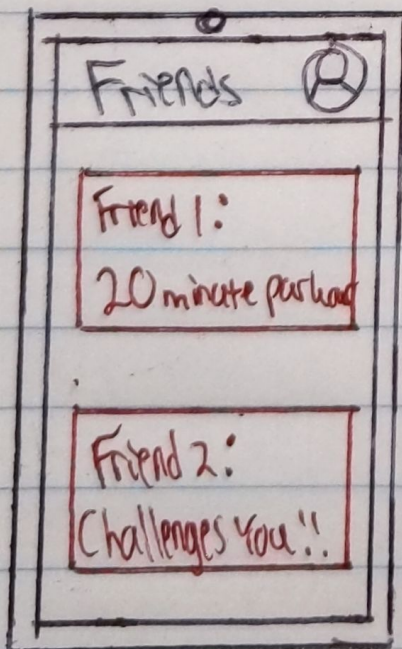 Friends
Friend 1:
20 minute
Friend 2:
Challenges You!!